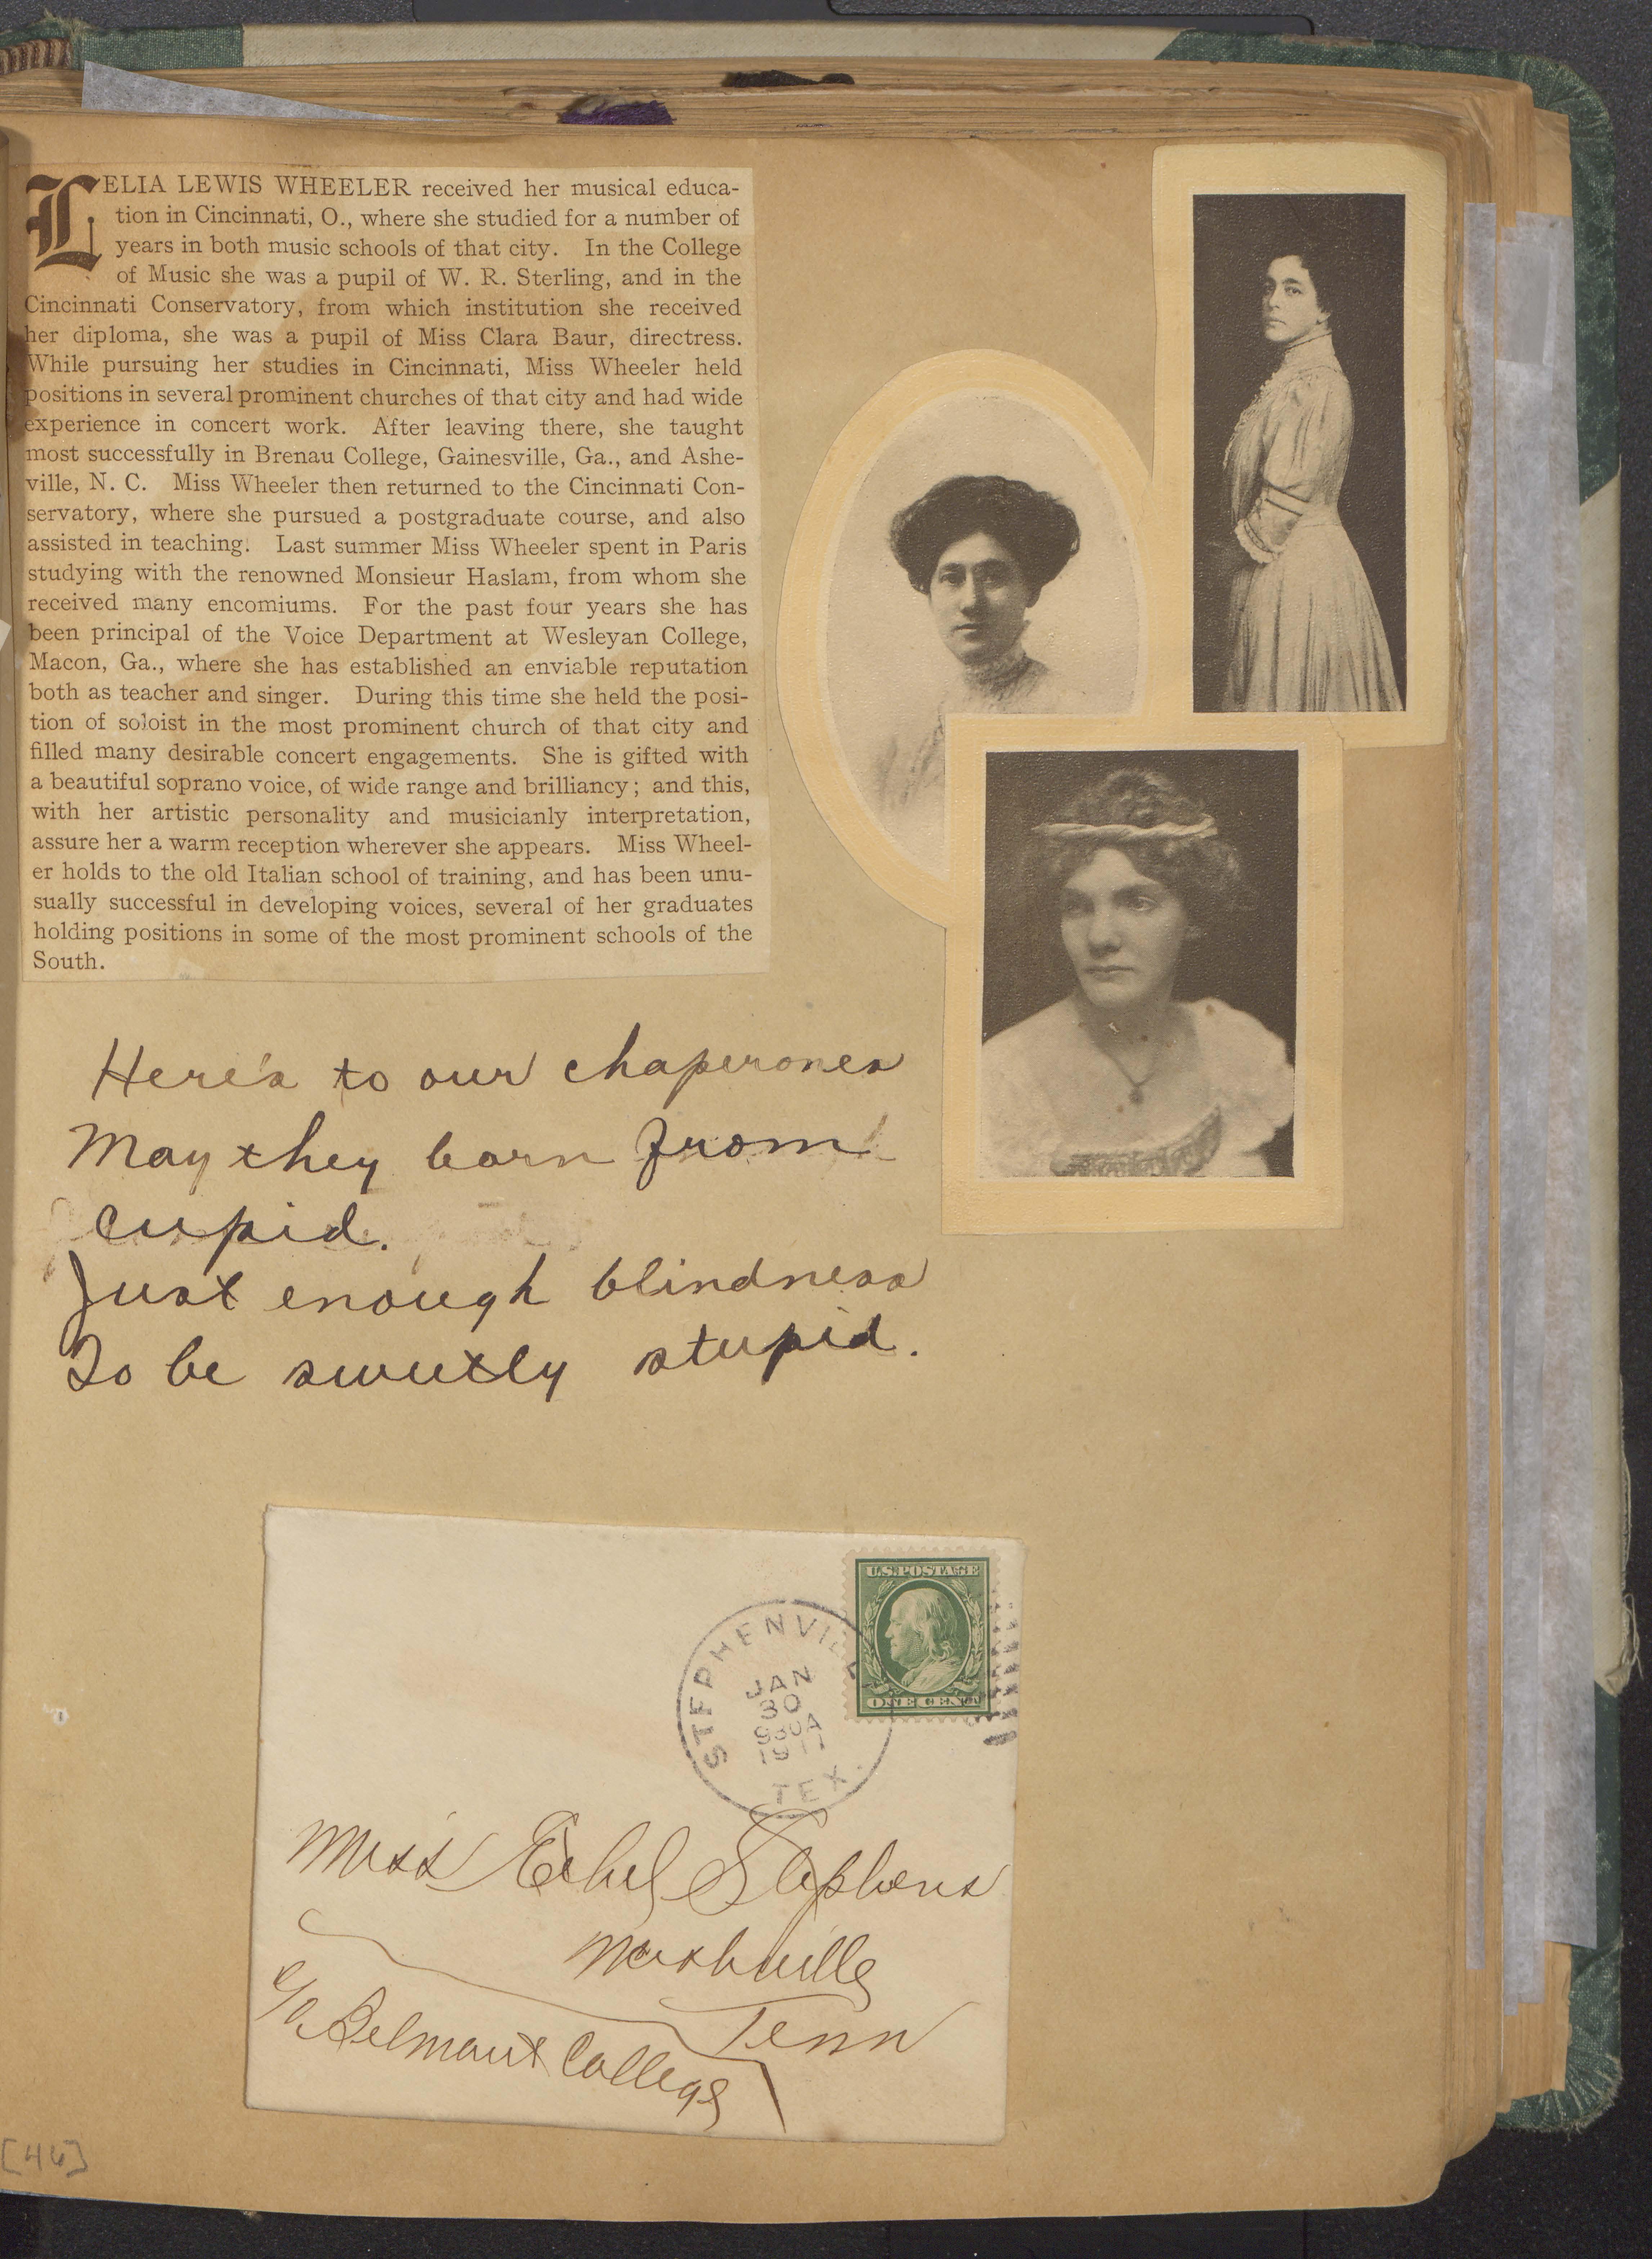 LELIA LEWIS WHEELER received her musical educa-
tion in Cincinnati, O., where she studied for a number of
years in both music schools of that city. In the College
of Music she was a pupil of W. R. Sterling, and in the
Cincinnati Conservatory, from which institution she received
her diploma, she was a pupil of Miss Clara Baur, directress.
While pursuing her studies in Cincinnati, Miss Wheeler held
positions in several prominent churches of that city and had wide
experience in concert work. After leaving there, she taught
most successfully in Brenau College, Gainesville, Ga., and Ashe-
ville, N. C. Miss Wheeler then returned to the Cincinnati Con-
servatory, where she pursued a postgraduate course, and also
assisted in teaching. Last summer Miss Wheeler spent in Paris
studying with the renowned Monsieur Haslam, from whom she
received many encomiums. For the past four years she has
been principal of the Voice Department at Wesleyan College,
Macon, Ga., where she has established an enviable reputation
both as teacher and singer. During this time she held the posi-
tion of soloist in the most prominent church of that city and
filled many desirable concert engagements. She is gifted with
a beautiful soprano voice, of wide range and brilliancy; and this,
with her artistic personality and musicianly interpretation,
assure her a warm reception wherever she appears. Miss Wheel-
er holds to the old Italian school of training, and has been unu-
sually successful in developing voices, several of her graduates
holding positions in some of the most prominent schools of the
South.
Here's to our chaperones
May they learn from
Cupid.
Just enough blindness
To be sweetly stupid.
U.S. POSTAGE
ONE CENT
STEPHENVILLE
JAN
30
930A
1911
TEX.
Miss Ethel Stephens
Nashville
Tenn
c/o Belmont College
[46]